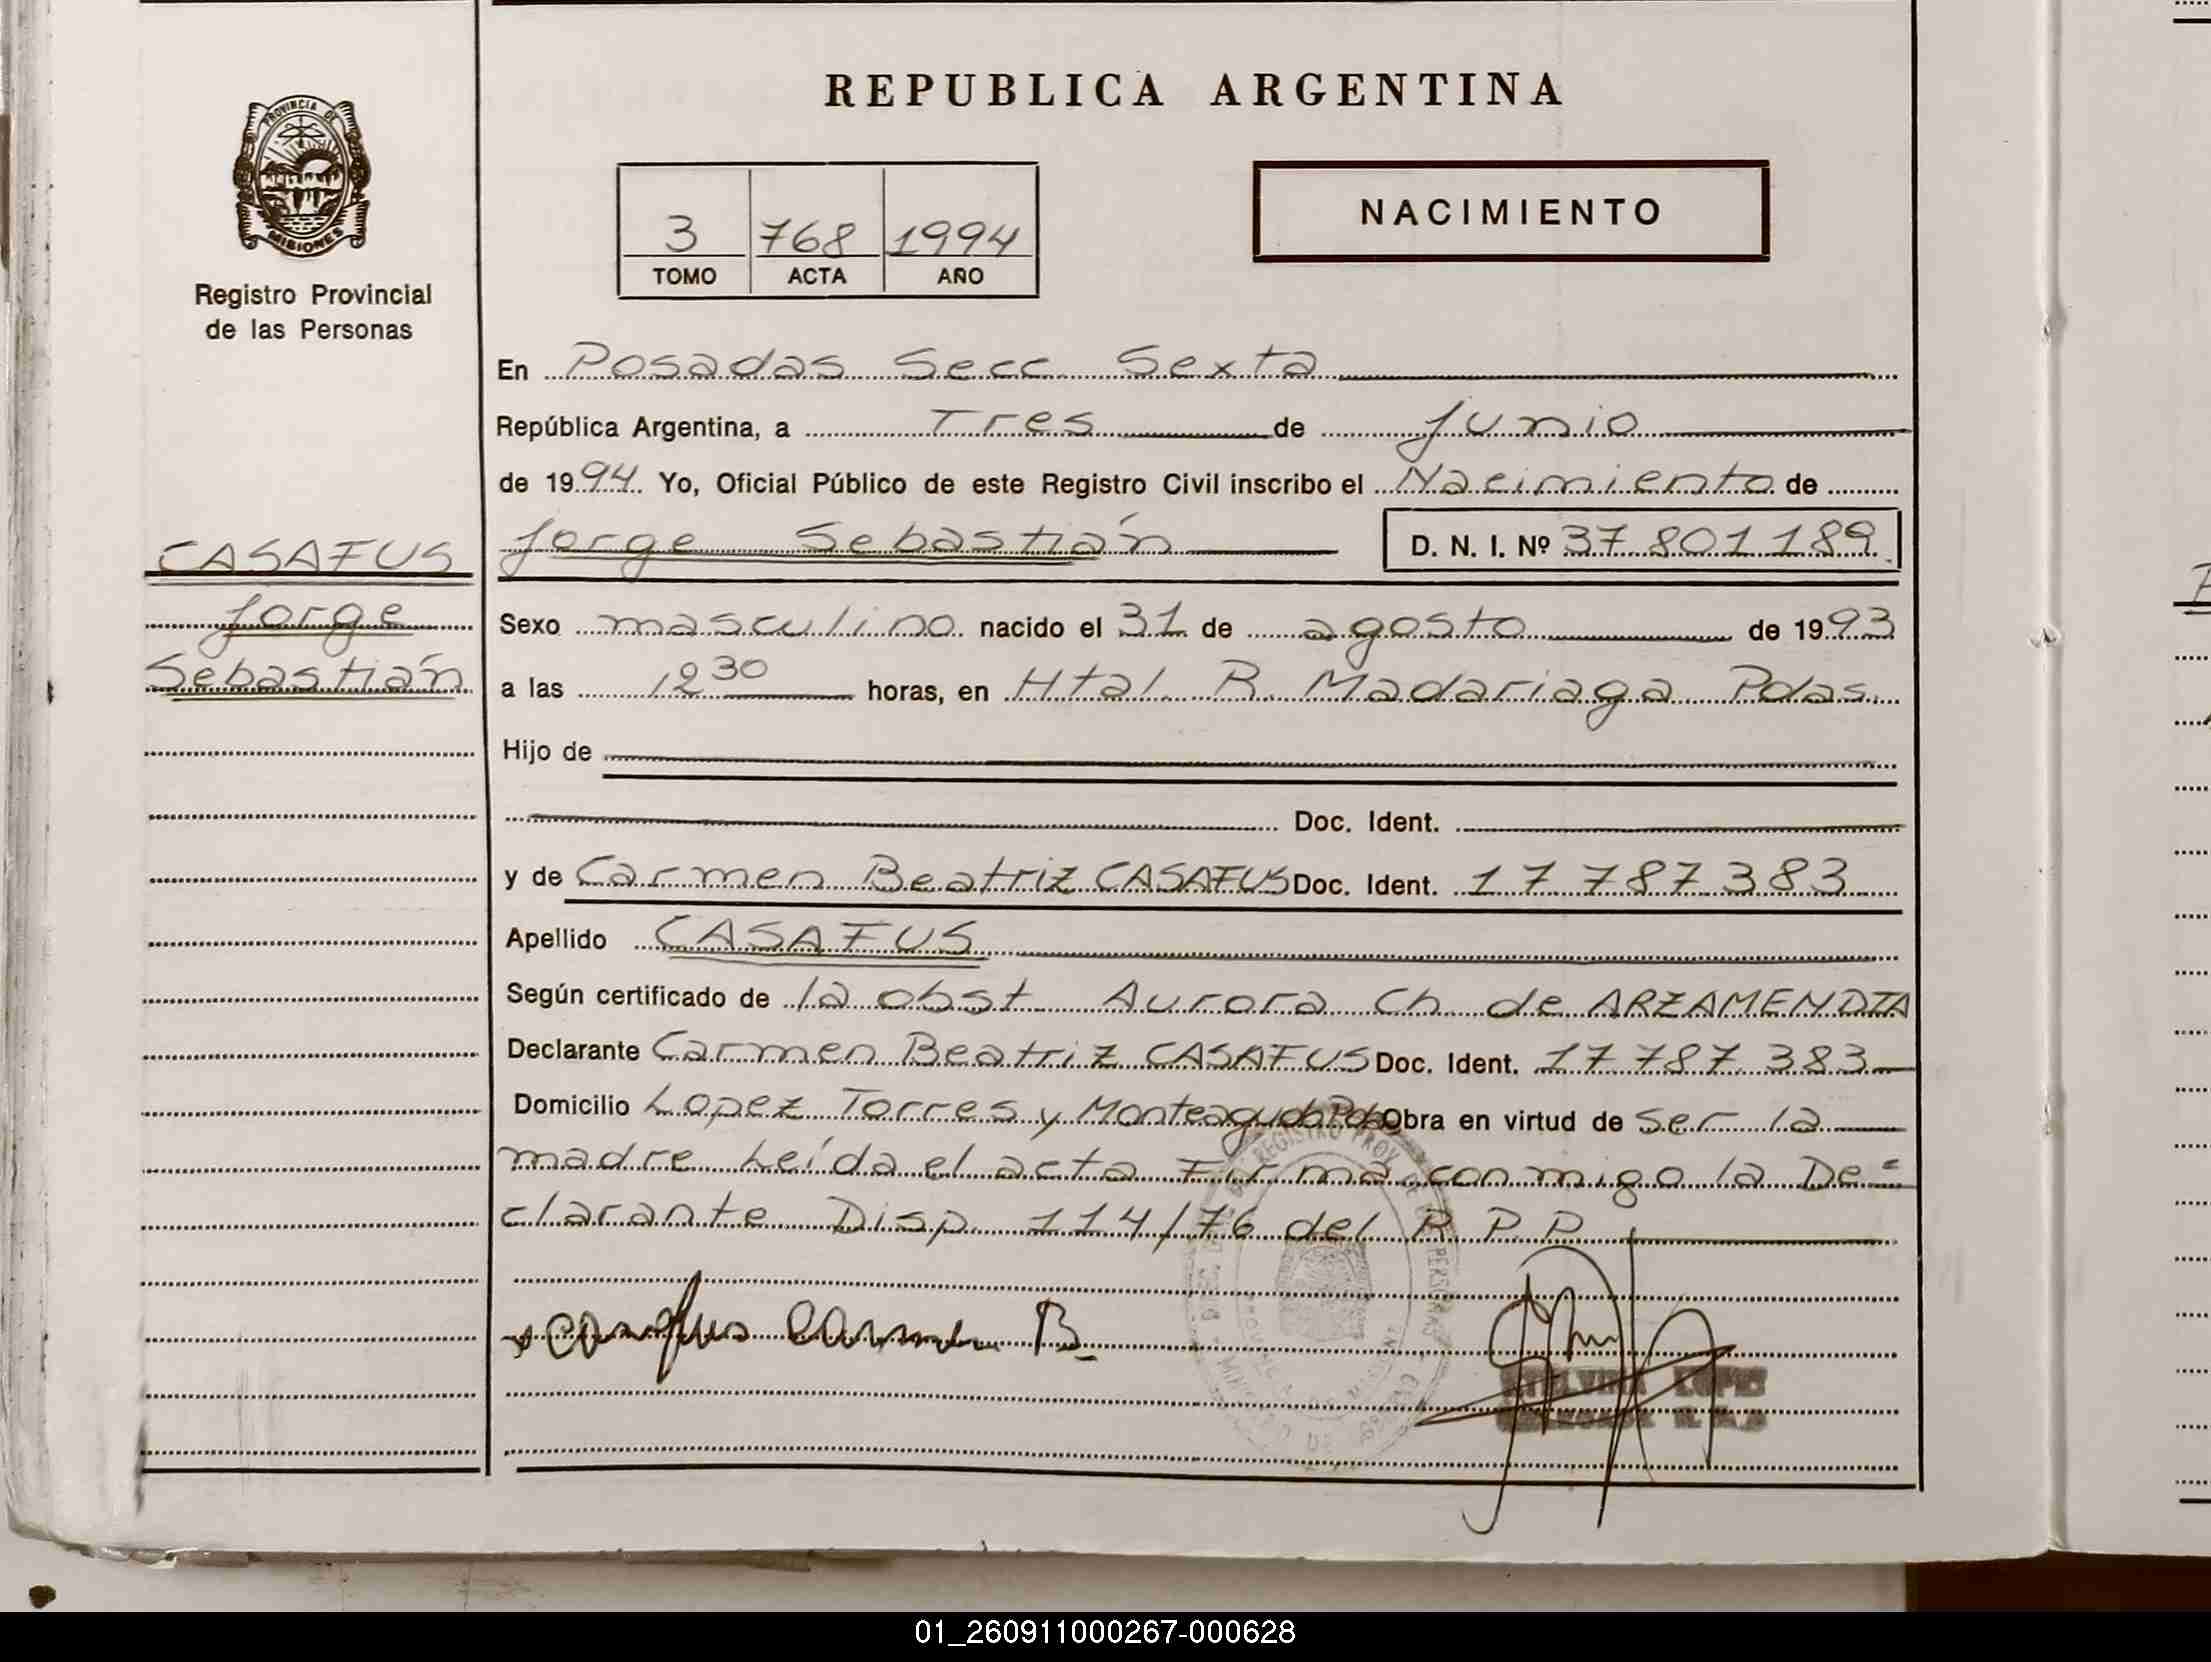 REPUBLICA ARGENTINA
PROVINCIA DE
MISIONES
Registro Provincial
de las Personas
3 768 1994
TOMO ACTA AÑO
NACIMIENTO
CASAFUS
Jorge
Sebastián
En Posadas Secc. Sexta
República Argentina, a Tres de Junio
de 1994. Yo, Oficial Público de este Registro Civil inscribo el Nacimiento de
Jorge Sebastián D. N. I. Nº 37.801.189
Sexo masculino nacido el 31 de agosto de 1993
a las 12 30 horas, en Htal. R. Madariaga Pdas.
Hijo de
Doc. Ident.
y de Carmen Beatriz CASAFUS Doc. Ident. 17 787 383
Apellido CASAFUS
Según certificado de la obst Aurora Ch. de ARZAMENDIA
Declarante Carmen Beatriz CASAFUS Doc. Ident. 17 787 383
Domicilio Lopez Torres y Monteagudo Pdas Obra en virtud de ser la
madre Leída el acta Firma conmigo la De=
clarante Disp. 114/76 del R.P.P.
Casafus Carmen B.
01_260911000267-000628